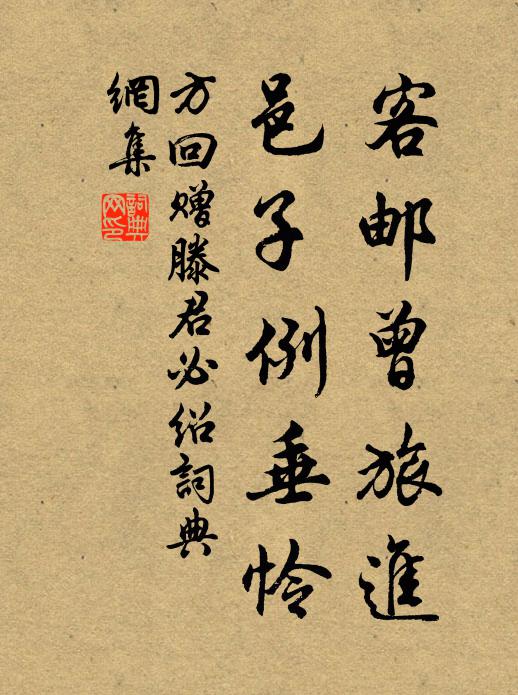 客邮曾旅進
邑子例垂怜
方回赠滕君必绍詞典
網集
詞典
网印